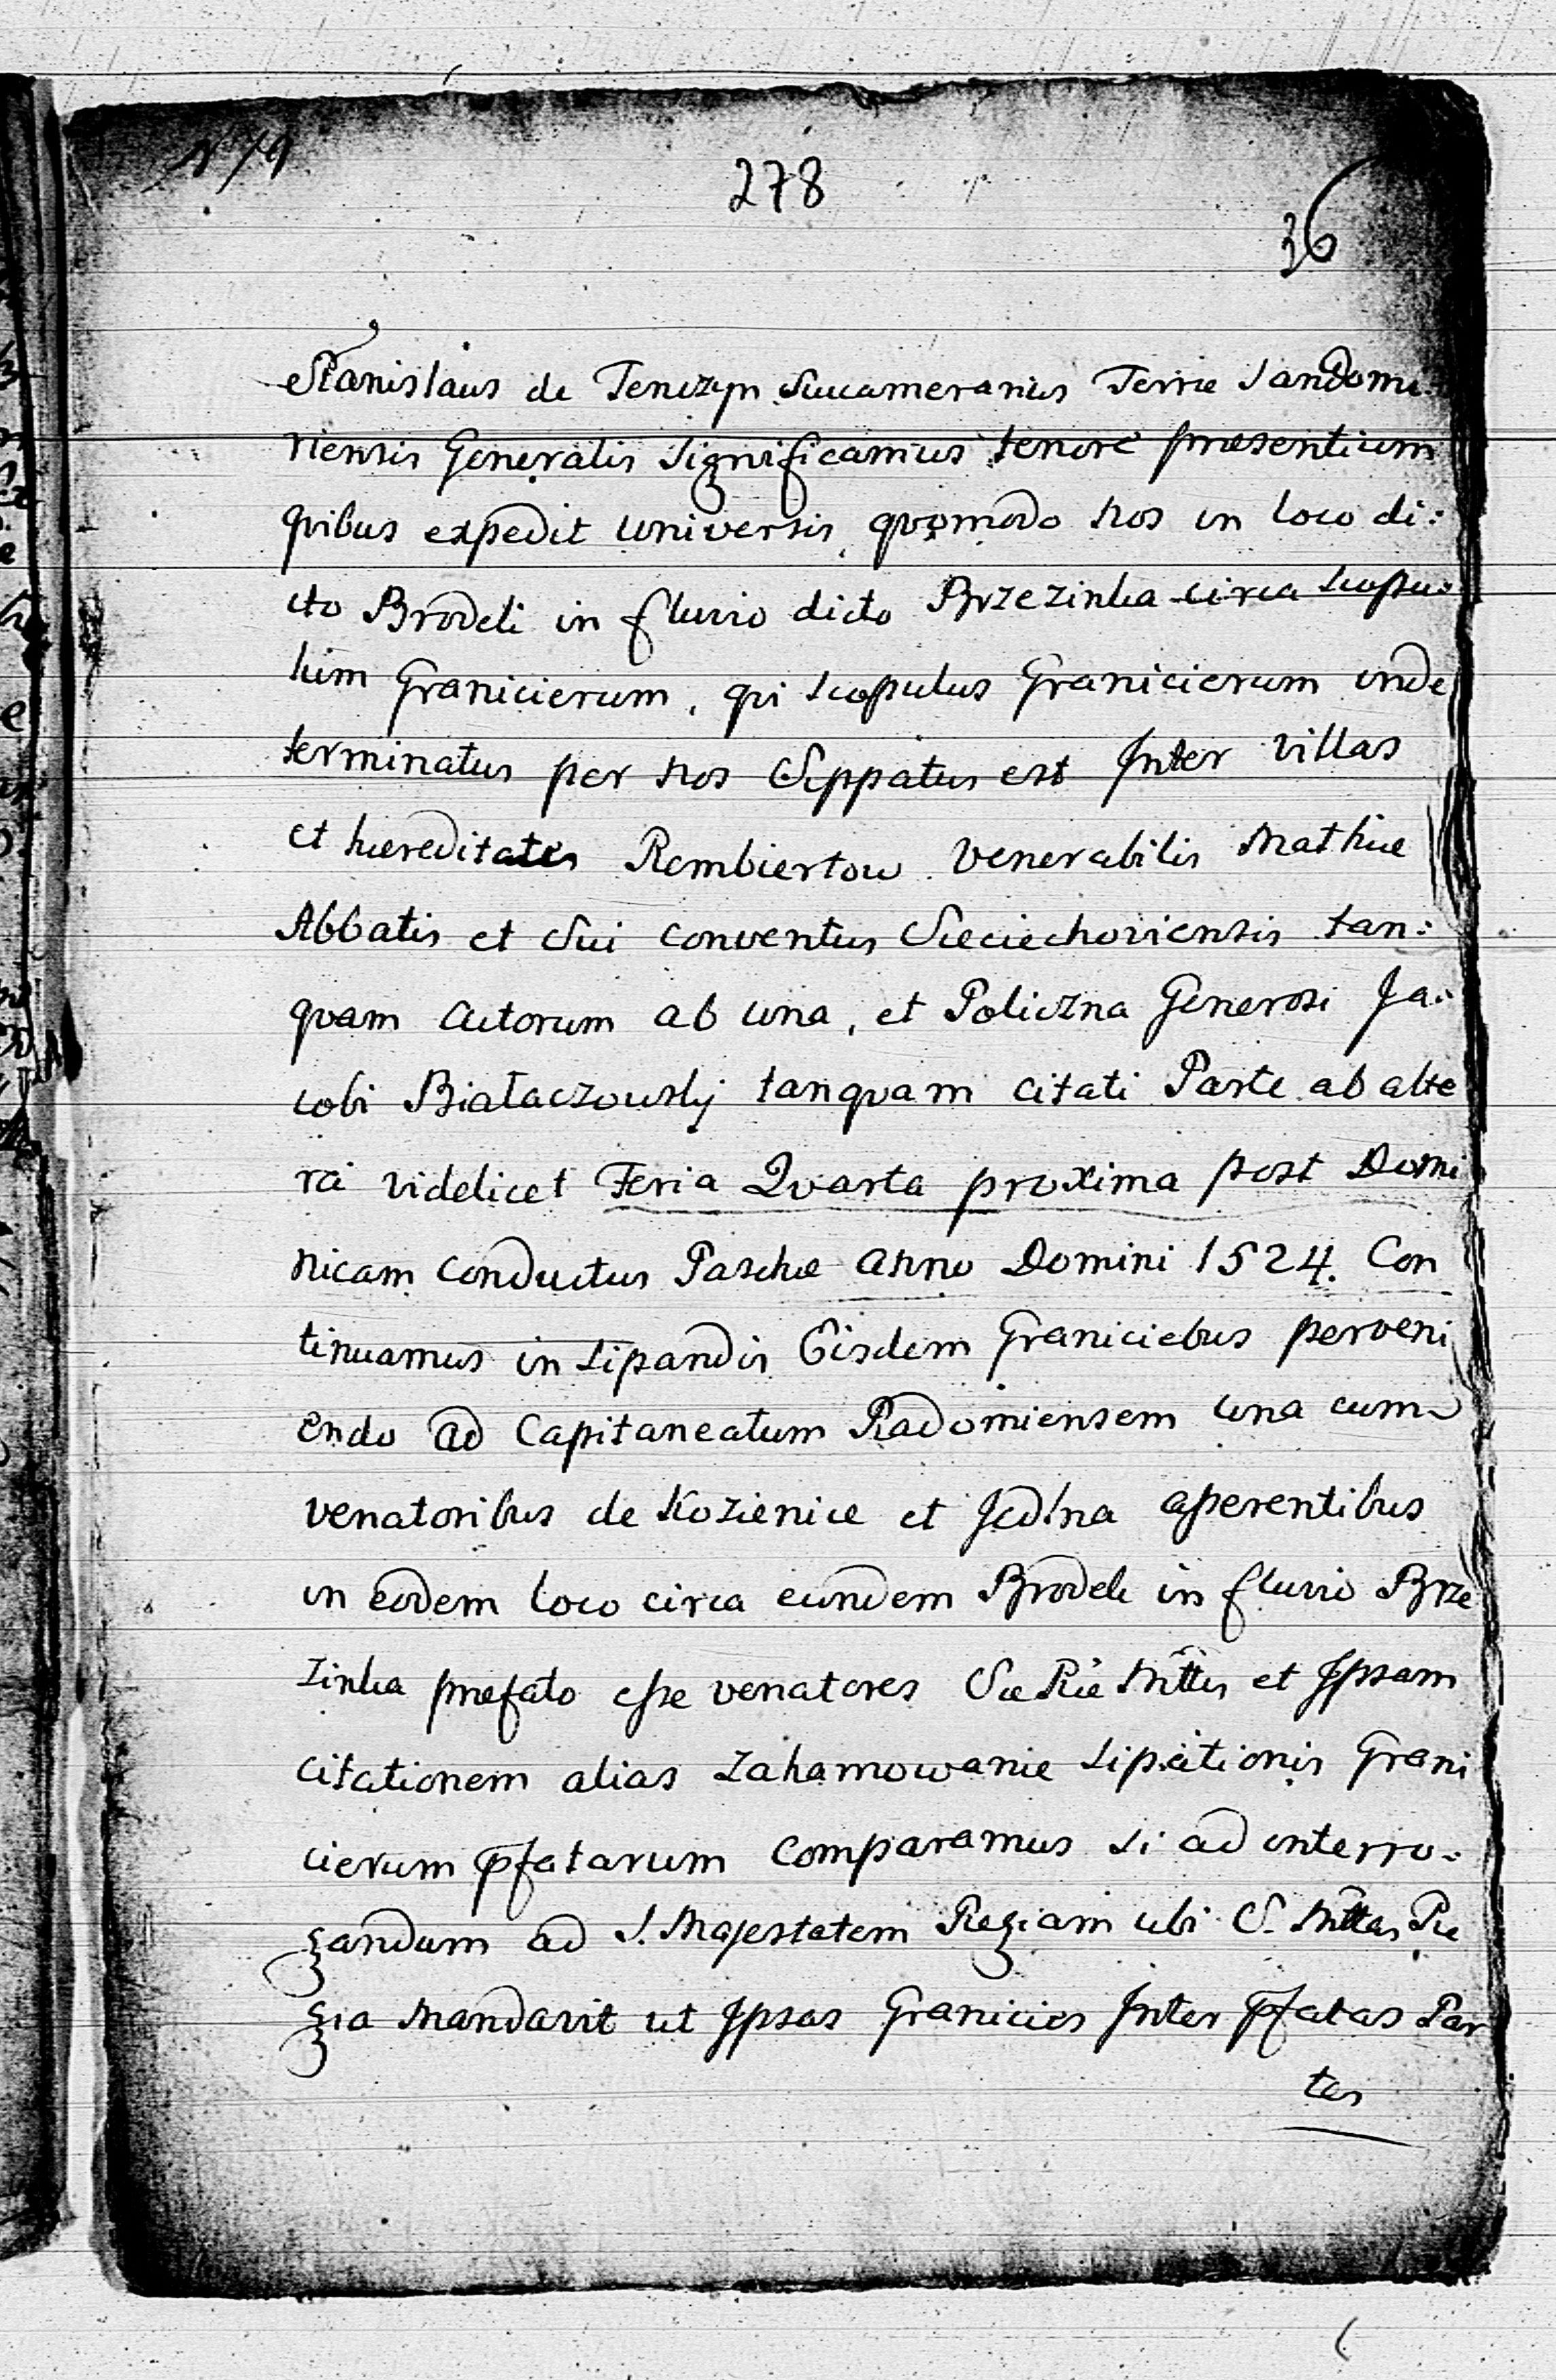 N 79
278
36
Stanislaus de Tenczyn Succamerarius Terræ Sandomi:
riensis Generalis Significamus tenore præsentium
quibus expedit universis, quomodo Nos in loco di:
cto Brodek in fluvio dicto Brzezinka circa scopu:
lum Granicierum, qui scopulus Granicierum inde
terminatus per nos Sippatus est Inter villas
et hæreditates Rembiertow Venerabilis Mathiæ
Abbatis et Sui Conventus Sieciechoviensis tan:
quam Actorum ab una, et Policzna Generosi Ja:
cobi Białaczowskj tanquam citati Parte ab alte
ra videlicet Feria Quarta proxima post Domi
nicam Conductus Paschæ Anno Domini 1524. Con
tinuamus in Sipandis Eisdem Graniciebus perveni
endo ad Capitaneatum Radomiensem una cum
venatoribus de Kozienice et Jedlna asserentibus
in eodem loco circa eundem Brodek in fluvio Brze
zinka præfato esse venatores Sæ Ræ Mttis et Ipsam
citationem alias Zahamowanie Sipationis Grani
cierum pfatarum Comparamus Si ad interro:
gandum ad S. Majestatem Regiam ubi S. Mttas Re
gia Mandavit ut Ipsas Granicies Inter pfatas Par
tes